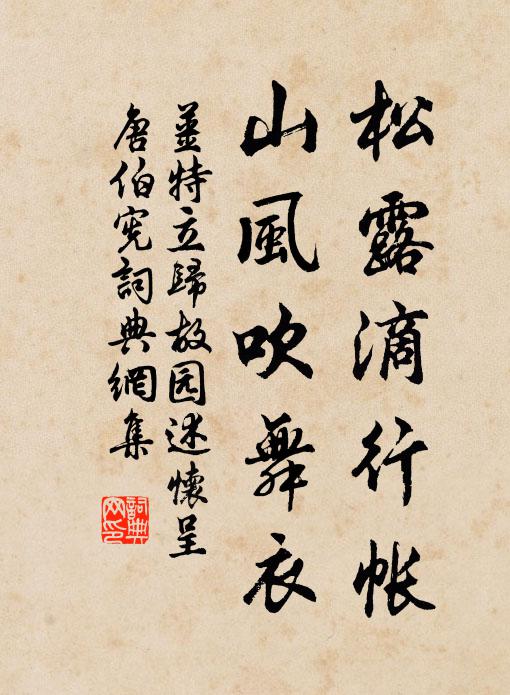 松露滴行帐
山風吹舞衣
姜特立歸故园述懷呈
唐伯宪詞典網集
詞典
网印